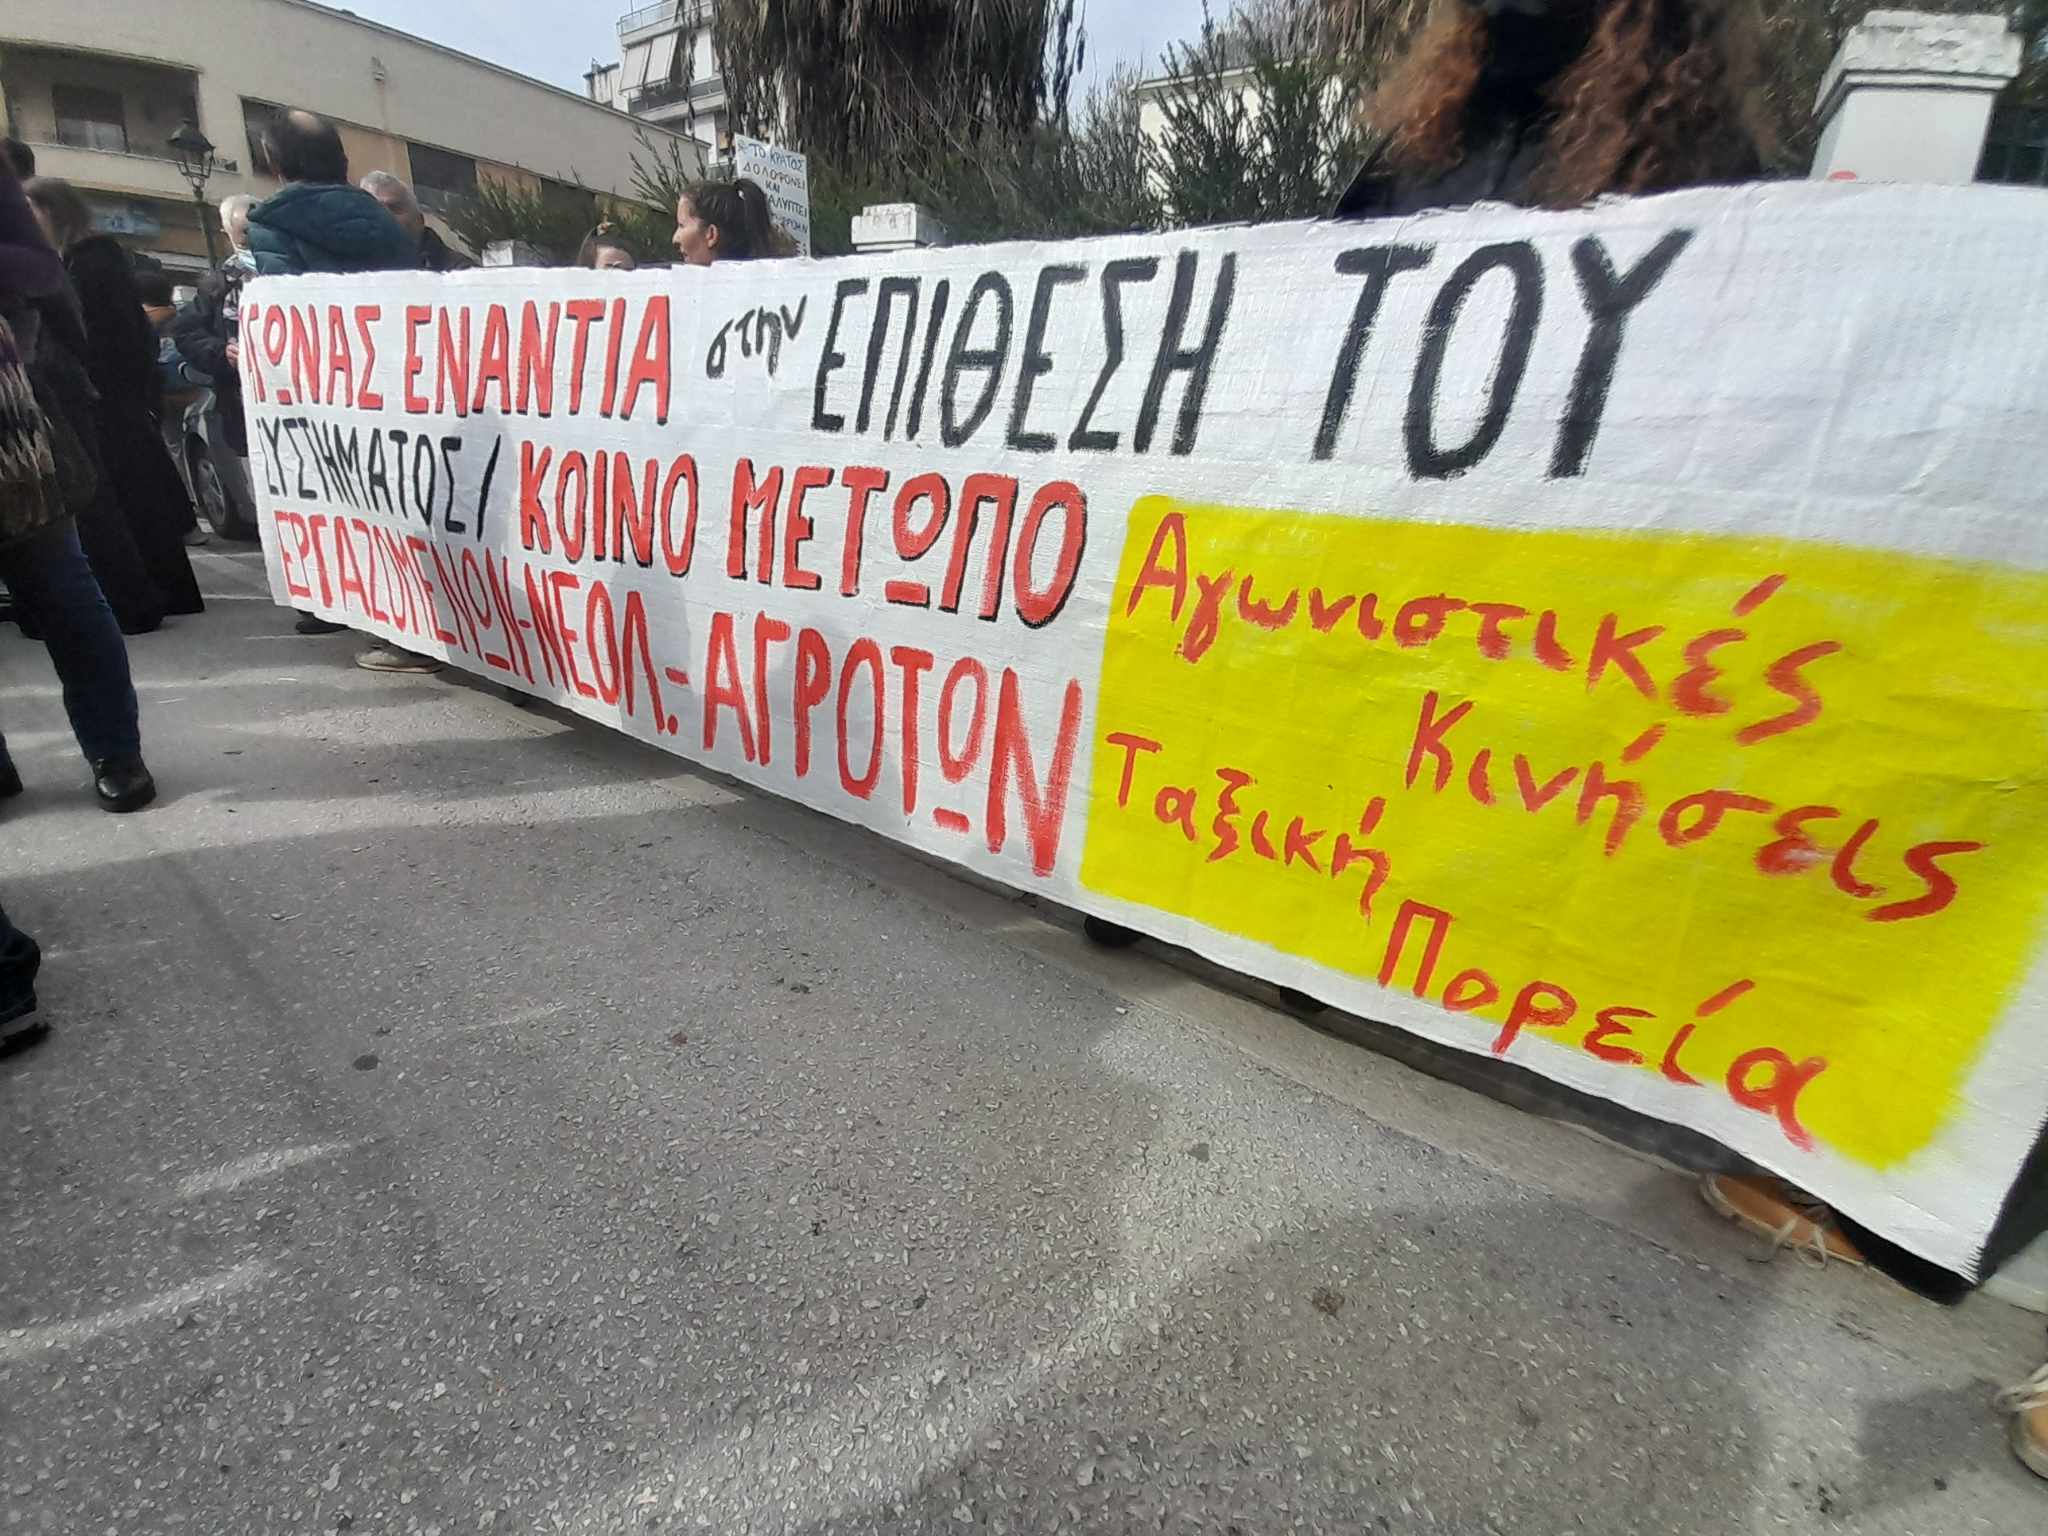 ΤΟ ΚΡΑΤΟΣ
ΔΟΛΟΦΟΝΕΙ
ΚΑΙ
ΑΓΩΝΑΣ ΕΝΑΝΤΙΑ στην ΕΠΙΘΕΣΗ ΤΟΥ
ΣΥΣΤΗΜΑΤΟΣ / ΚΟΙΝΟ ΜΕΤΩΠΟ
ΕΡΓΑΖΟΜΕΝΩΝ-ΝΕΟΛ.-ΑΓΡΟΤΩΝ
Αγωνιστικές
Κινήσεις
Ταξική
Πορεία